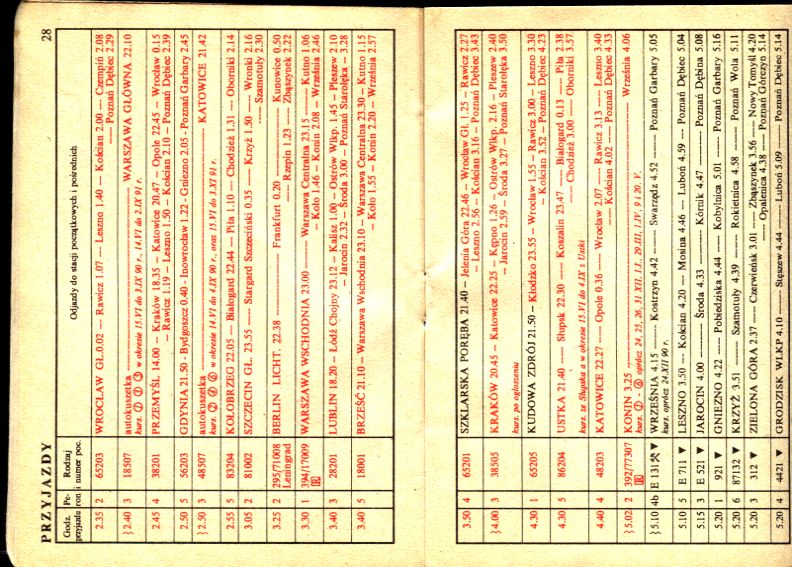 PRZYJAZDY
28
Godz. przyjazdu
Pe-ron
Rodzaj i numer poc.
Odjazdy do stacji początkowych i pośrednich
2.35 2 65203 WROCŁAW GŁ.0.02 — Rawicz 1.07 — Leszno 1.40 — Kościan 2.00 — Czempiń 2.08
— Poznań Dębiec 2.29
}2.40 3 18507 autokuszetka — WARSZAWA GŁÓWNA 22.10
2.45 4 38201 PRZEMYŚL 14.00 — Kraków 18.35 — Katowice 20.47 — Opole 22.45 — Wrocław 0.15
— Rawicz 1.19 — Leszno 1.50 — Kościan 2.10 — Poznań Dębiec 2.39
2.50 5 56203 GDYNIA 21.50 - Bydgoszcz 0.40 - Inowrocław 1.22 - Gniezno 2.05 - Poznań Garbary 2.45
}2.50 3 48507 autokuszetka — KATOWICE 21.42
2.55 5 83204 KOŁOBRZEG 22.05 — Białogard 22.44 — Piła 1.10 — Chodzież 1.31 — Oborniki 2.14
3.05 2 81002 SZCZECIN GŁ. 23.55 — Stargard Szczeciński 0.35 — Krzyż 1.50 — Wronki 2.16
— Szamotuły 2.30
3.25 2 295/71008 Leningrad BERLIN LICHT. 22.38 — Frankfurt 0.20 — Kunowice 0.50
— Rzepin 1.23 — Zbąszynek 2.22
3.30 1 394/17009 R WARSZAWA WSCHODNIA 23.00 — Warszawa Centralna 23.15 — Kutno 1.06
— Koło 1.46 — Konin 2.08 — Września 2.46
3.40 3 28201 LUBLIN 18.20 — Łódź Chojny 23.12 — Kalisz 1.00 — Ostrów Wlkp. 1.45 — Pleszew 2.10
— Jarocin 2.32 — Środa 3.00 — Poznań Starołęka 3.28
3.40 5 18001 BRZEŚĆ 21.10 — Warszawa Wschodnia 23.10 — Warszawa Centralna 23.30 — Kutno 1.15
— Koło 1.55 — Konin 2.20 — Września 2.57
3.50 4 65201 SZKLARSKA PORĘBA 21.40 — Jelenia Góra 22.46 — Wrocław Gł. 1.25 — Rawicz 2.27
— Leszno 2.56 — Kościan 3.16 — Poznań Dębiec 3.43
}4.00 3 38505 KRAKÓW 20.45 — Katowice 22.25 — Kępno 1.26 — Ostrów Wlkp. 2.16 — Pleszew 2.40
kurs. po ogłoszeniu — Jarocin 2.59 — Środa 3.27 — Poznań Starołęka 3.50
4.30 1 65205 KUDOWA ZDRÓJ 21.50 — Kłodzko 23.55 — Wrocław 1.55 — Rawicz 3.00 — Leszno 3.30
— Kościan 3.52 — Poznań Dębiec 4.23
4.30 5 86204 USTKA 21.40 — Słupsk 22.30 — Koszalin 23.47 — Białogard 0.13 — Piła 2.38
kurs. ze Słupska a w okresie 15.VI do 4.IX z Ustki — Chodzież 3.00 — Oborniki 3.57
4.40 4 48203 KATOWICE 22.27 — Opole 0.36 — Wrocław 2.07 — Rawicz 3.13 — Leszno 3.40
— Kościan 4.02 — Poznań Dębiec 4.33
}5.02 2 392/77307 R KONIN 3.25 — Września 4.06
}5.10 4b E 131 ▼ WRZEŚNIA 4.15 — Kostrzyn 4.42 — Swarzędz 4.52 — Poznań Garbary 5.05
kurs. oprócz 24.XII 90 r.
5.10 5 E 711 ▼ LESZNO 3.50 — Kościan 4.20 — Mosina 4.46 — Luboń 4.59 — Poznań Dębiec 5.04
5.15 3 E 521 ▼ JAROCIN 4.00 — Środa 4.33 — Kórnik 4.47 — Poznań Dębina 5.08
5.20 1 921 ▼ GNIEZNO 4.22 — Pobiedziska 4.44 — Kobylnica 5.01 — Poznań Garbary 5.16
5.20 6 87132 ▼ KRZYŻ 3.51 — Szamotuły 4.39 — Rokietnica 4.58 — Poznań Wola 5.11
5.20 3 312 ▼ ZIELONA GÓRA 2.37 — Czerwieńsk 3.01 — Zbąszynek 3.56 — Nowy Tomyśl 4.20
— Opalenica 4.38 — Poznań Górczyn 5.14
5.20 4 4421 ▼ GRODZISK WLKP 4.10 — Stęszew 4.44 — Luboń 5.09 — Poznań Dębiec 5.14